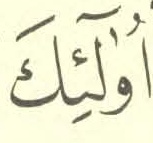 أُولَٰٓئِكَ